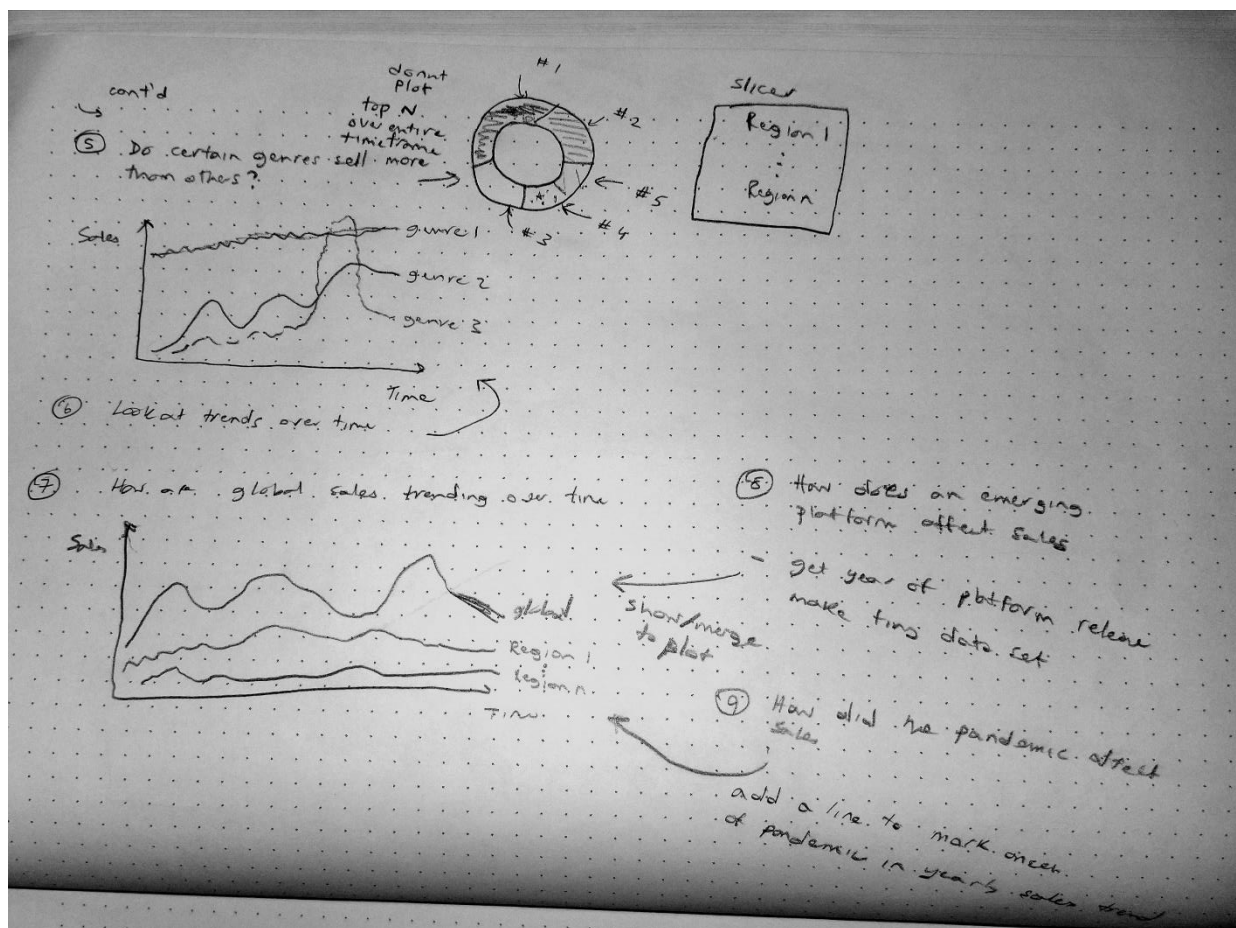 cont'd
donut
plot
top N
over entire
timeframe
#1
#2
#5
#4
#3
slicer
Region 1
Region n
5 Do certain genres sell more
than others?
Sales
genre 1
genre 2
genre 3
Time
6 Look at trends over time
7 How are global sales trending over time
Sales
global
Region 1
Region n
Time
8 How does an emerging
platform affect sales
- get year of platform release
make tiny data set
show/merge
to plot
9 How did the pandemic affect
sales
add a line to mark
of pandemic in yearly sales trend